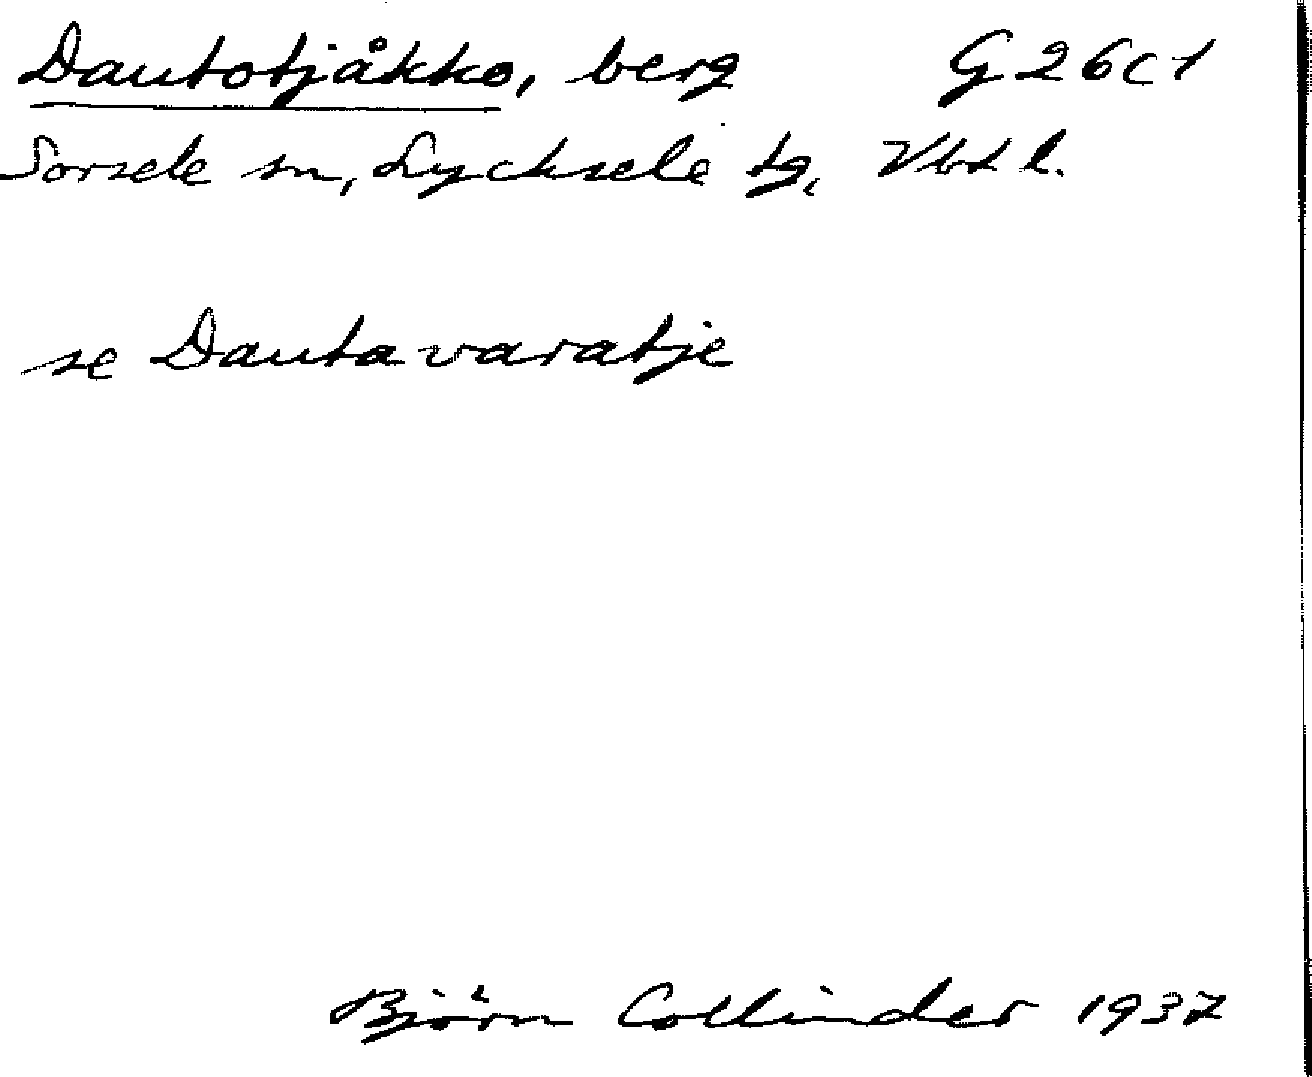 Dautotjåkko, berg G 26 c 1
Sorsele sn, Lycksele tg, Vbt l.
se Dautavaratje
Björn Collinder 1937